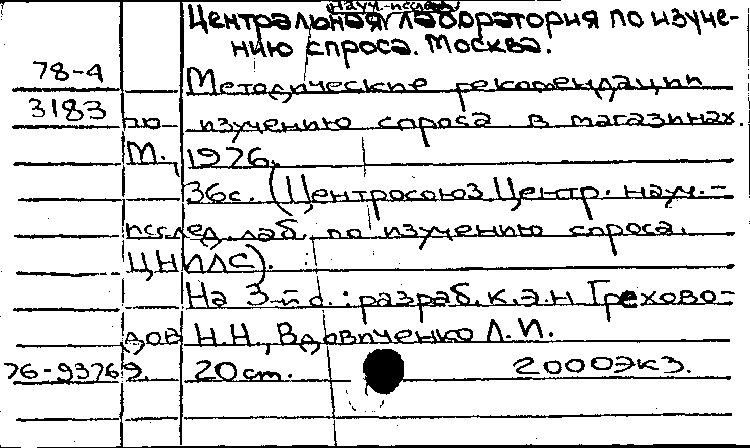 науч.-исслед.
Центральная лаборатория по изуче-
нию спроса. Москва.
78-4 Методические рекомендации
3183 по изучению спроса в магазинах.
М., 1976.
36с. (Центросоюз. Центр. науч.-
исслед. лаб. по изучению спроса.
ЦНИЛС).
На 3-й с.: разраб. к.э.н Грехово-
дов Н.Н., Вдовиченко Л.И.
76-93769. 20 ст. 2000экз.